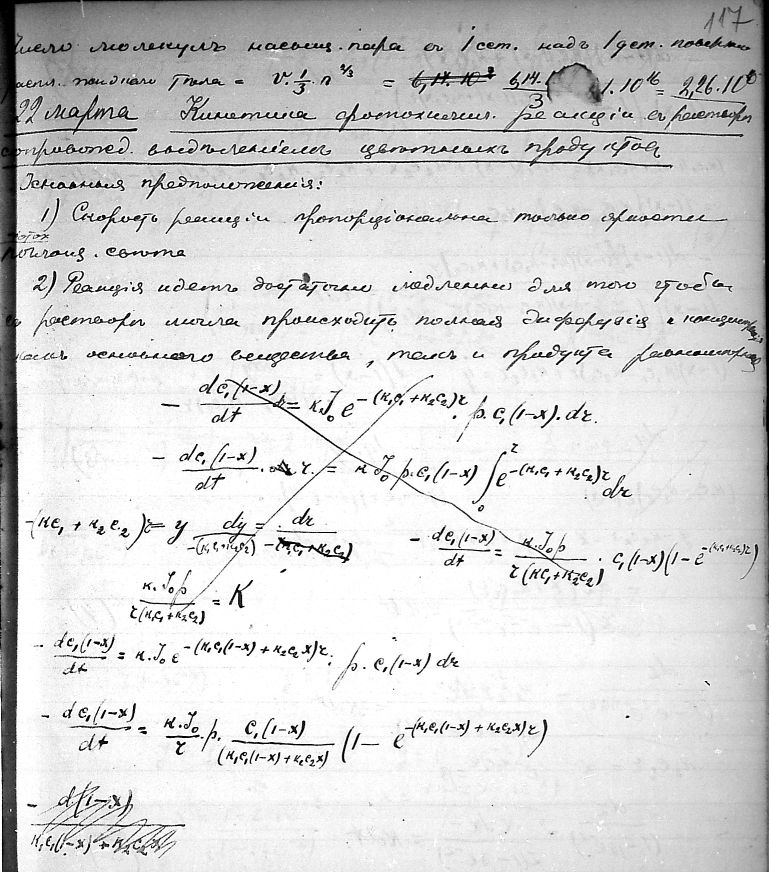 117
Число молекулъ насыщ. пара въ 1 сек. надъ 1 цет. поверхн.
тѣла = v·1/3·n^2/3 = 6,14·10 6,14 / 3 1·10^16 = 2,26·10
22 марта Кинетика фотохимич. реакціи въ растворѣ
сопровожд. выдѣленіемъ цвѣтныхъ продуктовъ
Основныя предположенія:
1) Скорость реакціи пропорціональна только яркости
поглощ. свѣта
2) Реакція идетъ достаточно медленно для того чтобы
въ растворѣ могла происходить полная диффузія и концентрація
какъ основного вещества, такъ и продукта равномѣрна
- dc₁(1-x)/dt = κJ₀e^-(κ₁c₁+κ₂c₂)r · p.c₁(1-x).dr.
- dc₁(1-x)/dt · r = κJ₀p.c₁(1-x) ∫₀^r e^-(κ₁c₁+κ₂c₂)r dr
-(κc₁+κ₂c₂)r = y dy/-(κ₁c₁+κ₂c₂) = dr/-(κc₁+κ₂c₂) - dc₁(1-x)/dt = κ.J₀p/r(κc₁+κ₂c₂) · c₁(1-x)(1-e^-(κ₁c₁+κ₂c₂)r)
κ.J₀p/r(κ₁c₁+κ₂c₂) = K
- dc₁(1-x)/dt = κ.J₀e^-(κ₁c₁(1-x)+κ₂c₂x)r · p.c₁(1-x)dr
- dc₁(1-x)/dt = κ.J₀/r · p. c₁(1-x)/(κ₁c₁(1-x)+κ₂c₂x) (1-e^-(κ₁c₁(1-x)+κ₂c₂x)r)
- d(1-x)/κ₁c₁(1-x)+κ₂c₂x